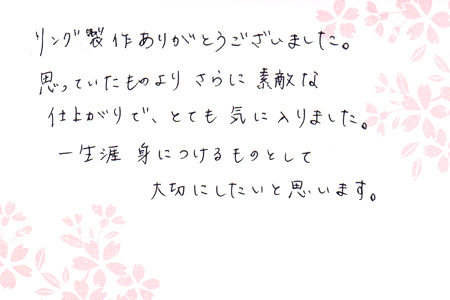 リング製作ありがとうございました。
思っていたものより さらに 素敵な
仕上がりで、とても 気に入りました。
一生涯 身につけるものとして
大切にしたいと思います。